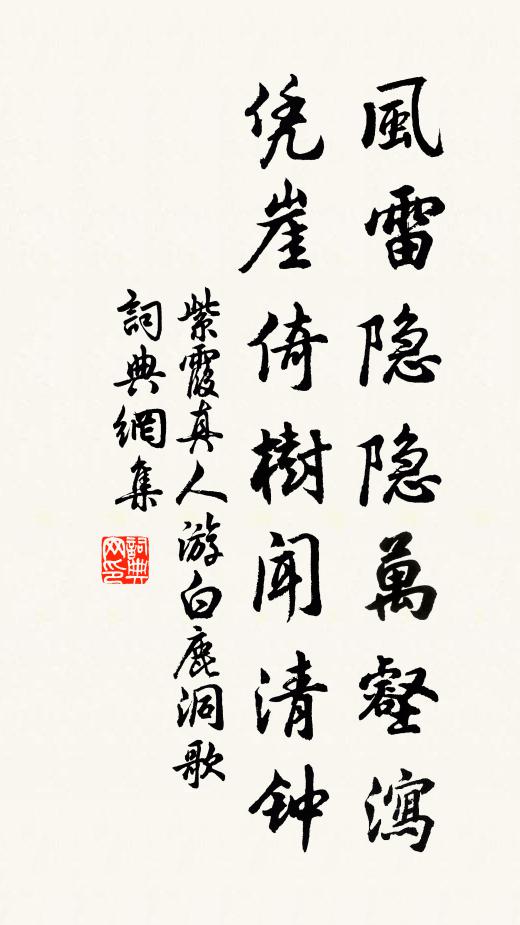 風雷隐隐萬壑瀉
凭崖倚樹聞清钟
紫霞真人游白鹿洞歌
詞典網集
詞典网印